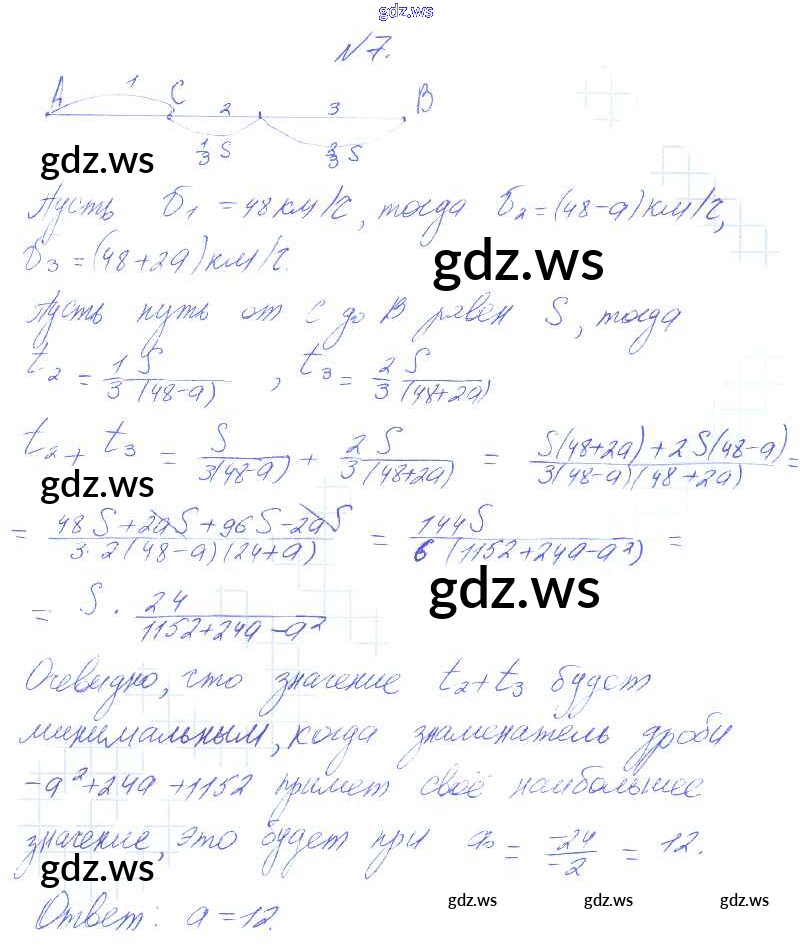 gdz.ws
N7.
A 1 C 2 3 B
1/3 S 2/3 S
gdz.ws
Пусть v1 = 48 км/ч, тогда v2 = (48-a) км/ч,
v3 = (48+2a) км/ч.
gdz.ws
Пусть путь от C до B равен S, тогда
t2 = 1/3 S/(48-a), t3 = 2/3 S/(48+2a)
t2 + t3 = S/3(48-a) + 2S/3(48+2a) = S(48+2a)+2S(48-a)/3(48-a)(48+2a) =
gdz.ws
= 48S+2aS+96S-2aS/3·2(48-a)(24+a) = 144S/6(1152+24a-a²) =
gdz.ws
= S · 24/1152+24a-a²
Очевидно, что значение t2+t3 будет
минимальным, когда знаменатель дроби
-a²+24a+1152 примет своё наибольшее
значение, это будет при a₀ = -24/-2 = 12.
gdz.ws
Ответ: a=12.
gdz.ws gdz.ws gdz.ws